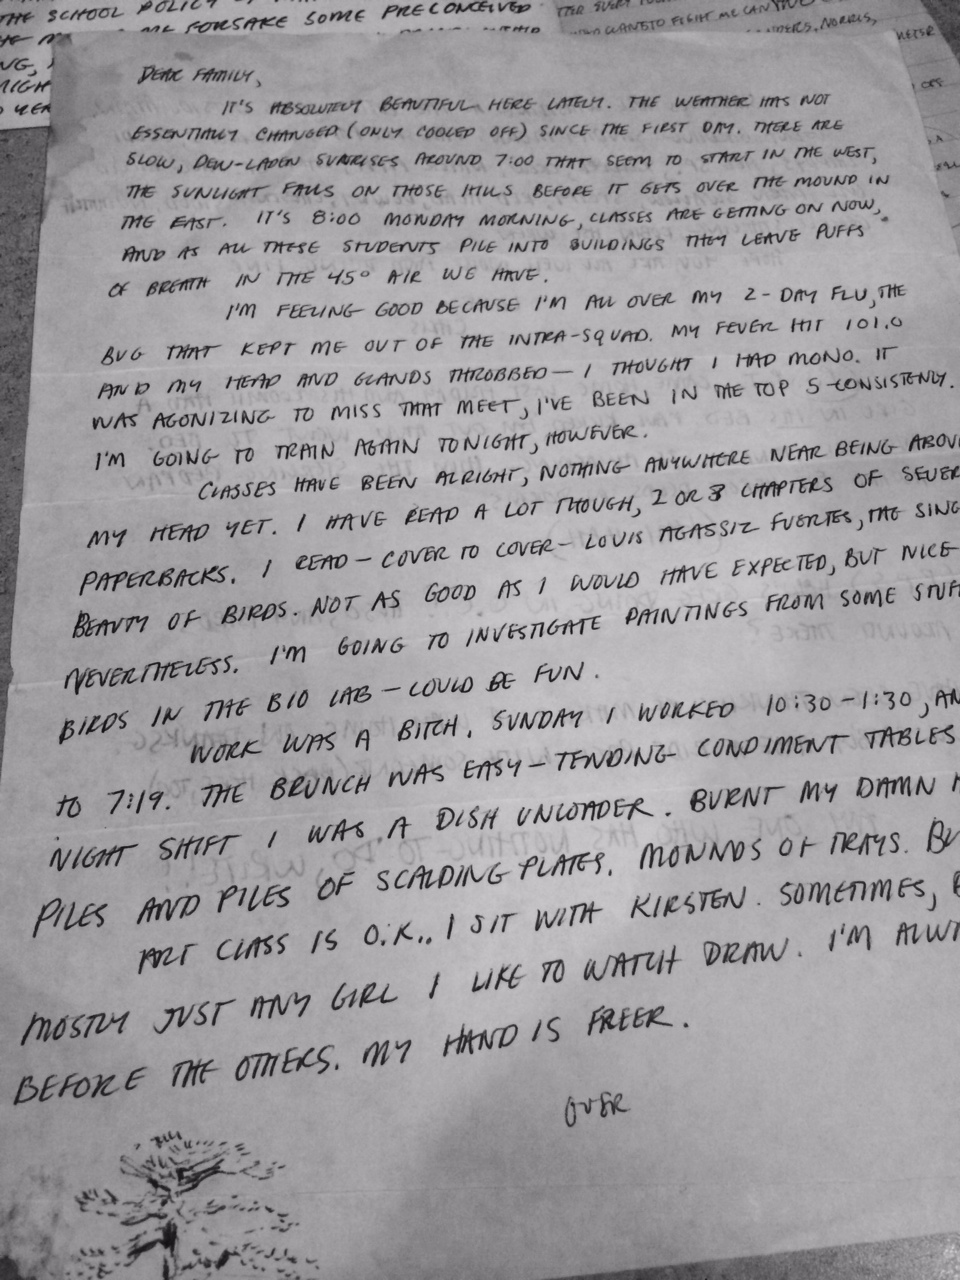 THE SCHOOL POLICY
ME FORSAKE SOME PRECONCEIVED
DEAR FAMILY,
IT'S ABSOLUTELY BEAUTIFUL HERE LATELY. THE WEATHER HAS NOT
ESSENTIALLY CHANGED (ONLY COOLED OFF) SINCE THE FIRST DAY. THERE ARE
SLOW, DEW-LADEN SUNRISES AROUND 7:00 THAT SEEM TO START IN THE WEST,
THE SUNLIGHT FALLS ON THOSE HILLS BEFORE IT GETS OVER THE MOUND IN
THE EAST. IT'S 8:00 MONDAY MORNING, CLASSES ARE GETTING ON NOW,
AND AS ALL THESE STUDENTS PILE INTO BUILDINGS THEY LEAVE PUFFS
OF BREATH IN THE 45° AIR WE HAVE.
I'M FEELING GOOD BECAUSE I'M ALL OVER MY 2-DAY FLU, THE
BUG THAT KEPT ME OUT OF THE INTRA-SQUAD. MY FEVER HIT 101.0
AND MY HEAD AND GLANDS THROBBED — I THOUGHT I HAD MONO. IT
WAS AGONIZING TO MISS THAT MEET, I'VE BEEN IN THE TOP 5 CONSISTENTLY.
I'M GOING TO TRAIN AGAIN TONIGHT, HOWEVER.
CLASSES HAVE BEEN ALRIGHT, NOTHING ANYWHERE NEAR BEING ABOV
MY HEAD YET. I HAVE READ A LOT THOUGH, 2 OR 3 CHAPTERS OF SEVER
PAPERBACKS. I READ — COVER TO COVER — LOUIS AGASSIZ FUERTES, THE SING
BEAUTY OF BIRDS. NOT AS GOOD AS I WOULD HAVE EXPECTED, BUT NICE
NEVERTHELESS. I'M GOING TO INVESTIGATE PAINTINGS FROM SOME STUFF
BIRDS IN THE BIO LAB — COULD BE FUN.
WORK WAS A BITCH. SUNDAY I WORKED 10:30 - 1:30, AN
TO 7:19. THE BRUNCH WAS EASY — TENDING CONDIMENT TABLES
NIGHT SHIFT I WAS A DISH UNLOADER. BURNT MY DAMN
PILES AND PILES OF SCALDING PLATES. MONNDS OF TRAYS. BU
ART CLASS IS O.K.. I SIT WITH KIRSTEN. SOMETIMES, B
MOSTLY JUST ANY GIRL I LIKE TO WATCH DRAW. I'M ALW
BEFORE THE OTHERS. MY HAND IS FREER.
OVER